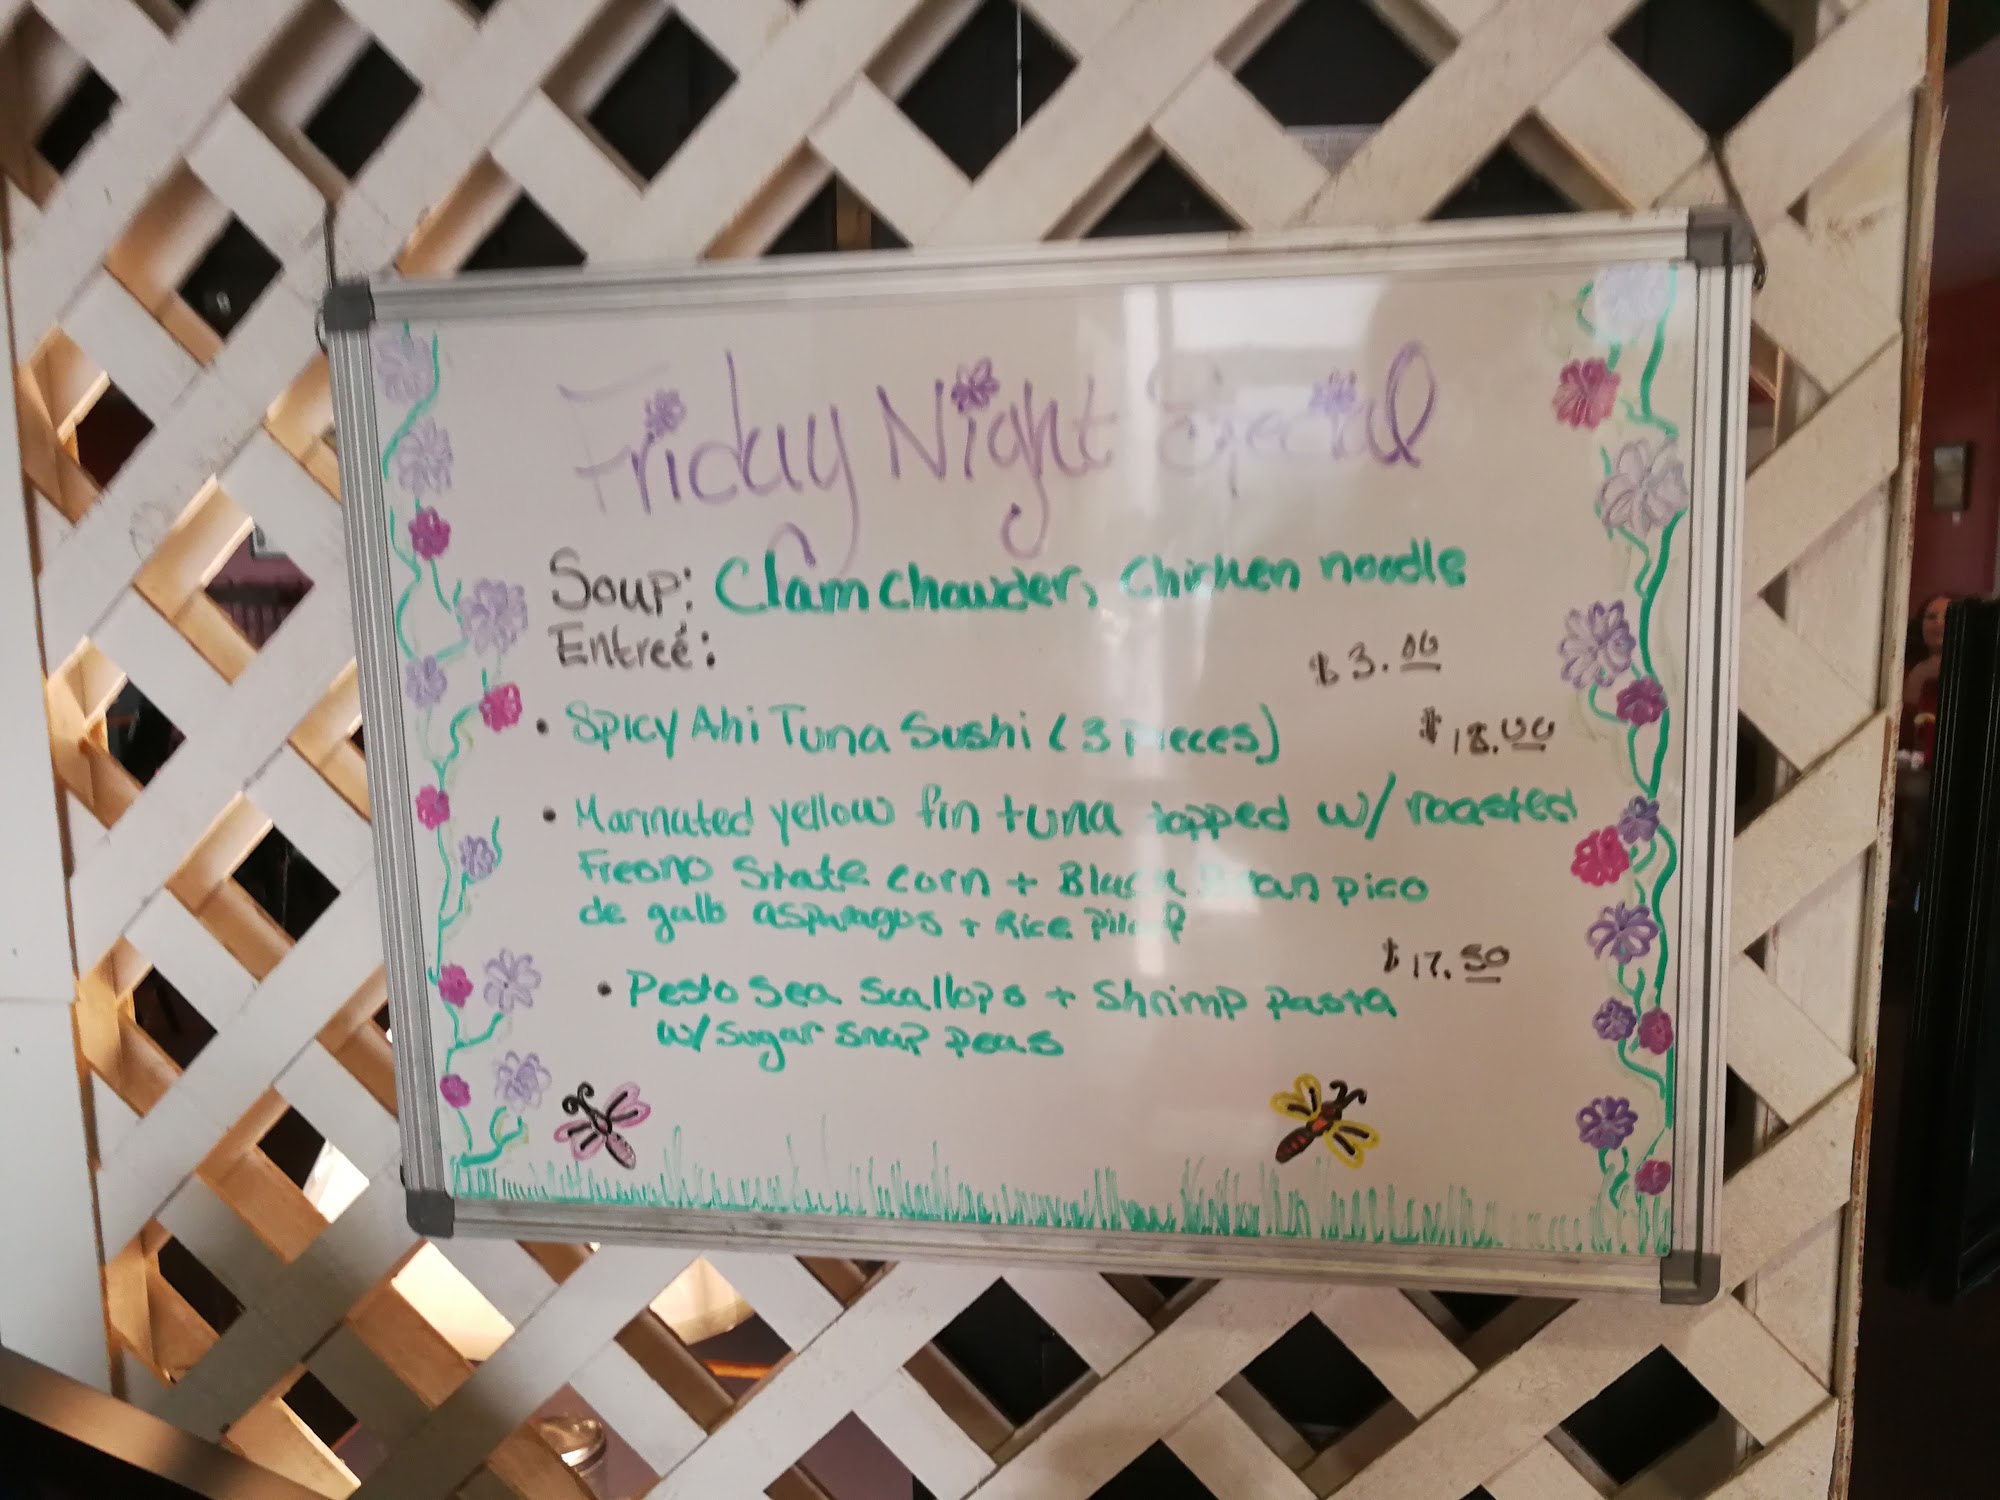 Friday Night Special
Soup: Clam Chowder, Chicken noodle
Entreé:
$3.00
• Spicy Ahi Tuna Sushi (3 pieces)
$18.00
• Marinated yellow fin tuna topped w/ roasted
Fresno State corn + Black Bean pico
de gallo asparagus + Rice Pilaf
$17.50
• Pesto Sea Scallops + Shrimp pasta
w/ Sugar snap peas